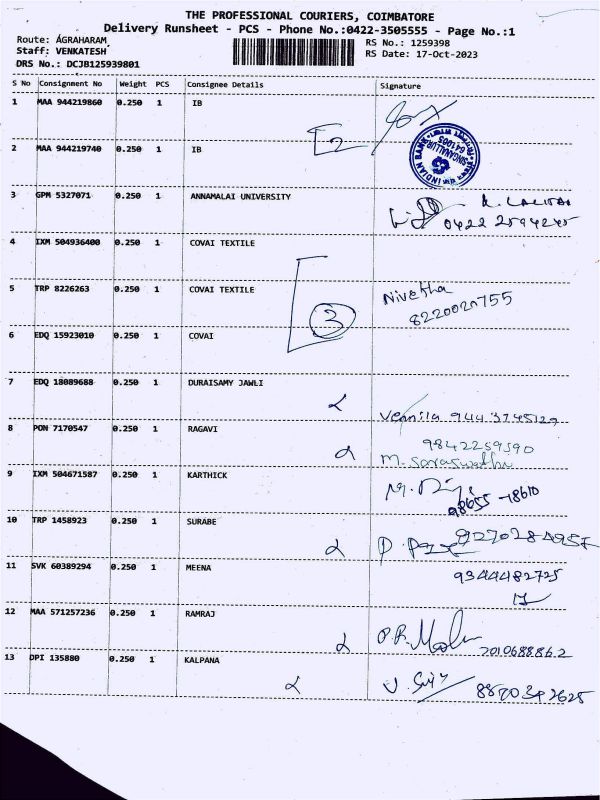 THE PROFESSIONAL COURIERS, COIMBATORE
Delivery Runsheet - PCS - Phone No.:0422-3505555 - Page No.:1
Route: AGRAHARAM RS No.: 1259398
Staff: VENKATESH RS Date: 17-Oct-2023
DRS No.: DCJB125939801
S No Consignment No Weight PCS Consignee Details Signature
1 MAA 944219860 0.250 1 IB
2 MAA 944219740 0.250 1 IB 2
INDIAN BANK
SINGANALLUR
641005
3 GPM 5327071 0.250 1 ANNAMALAI UNIVERSITY
0422 2594245
4 IXM 504936400 0.250 1 COVAI TEXTILE
5 TRP 8226263 0.250 1 COVAI TEXTILE 3 Nivetha
8220020755
6 EDQ 15923010 0.250 1 COVAI
7 EDQ 18089688 0.250 1 DURAISAMY JAWLI
Vennila 944 3745129
8 PON 7170547 0.250 1 RAGAVI 9842259590
M. Saraswathi
9 IXM 504671587 0.250 1 KARTHICK
98655 78610
10 TRP 1458923 0.250 1 SURABE
11 SVK 60389294 0.250 1 MEENA 9344482725
12 MAA 571257236 0.250 1 RAMRAJ
13 DPI 135880 0.250 1 KALPANA